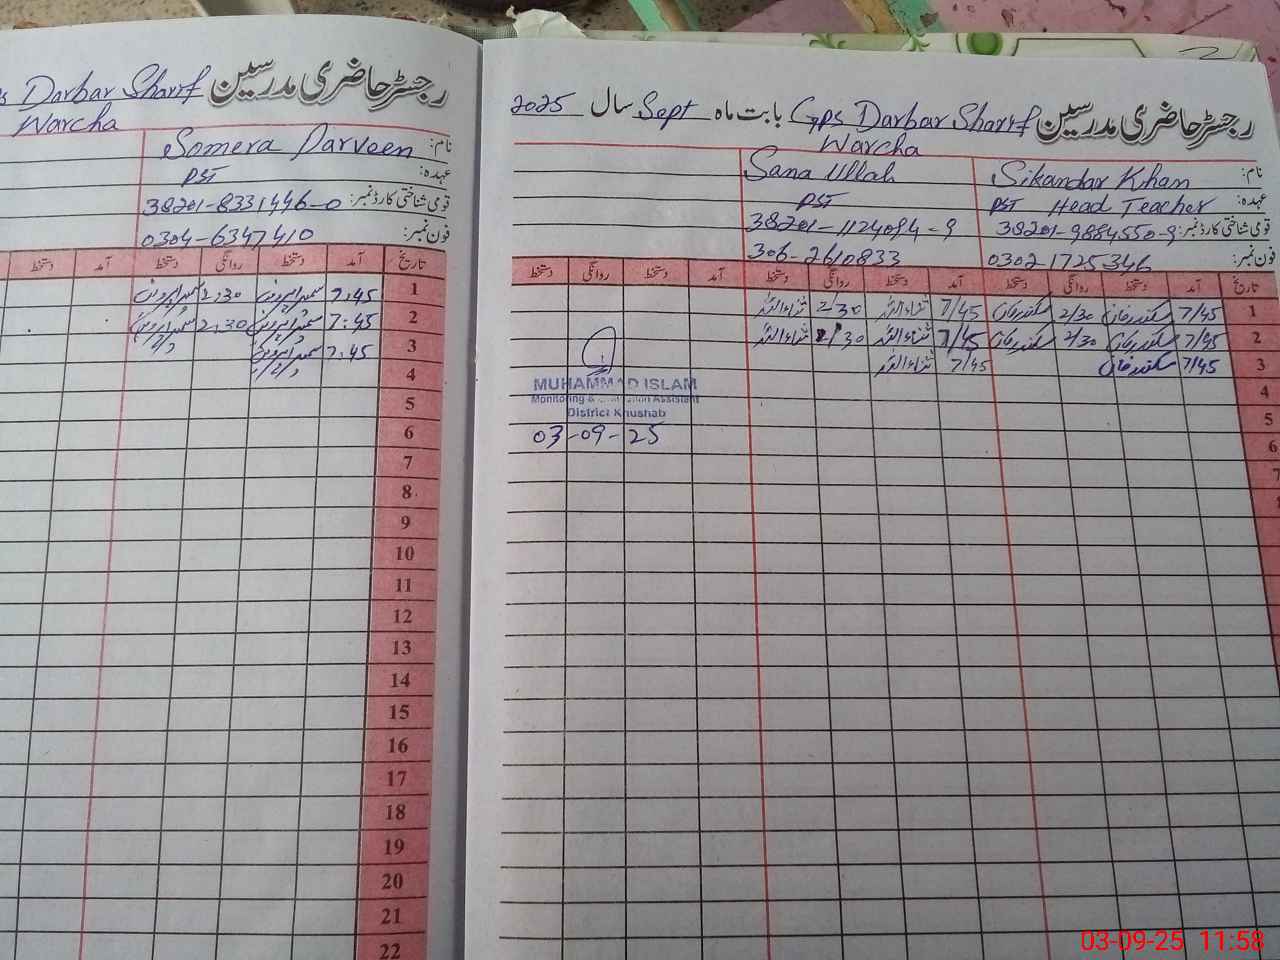 رجسٹر حاضری مدرسین Darbar Sharif
Warcha
نام: Somera Parveen
عہدہ: PST
قومی شناختی کارڈ نمبر: 38201-8331446-0
فون نمبر: 0304-6347410
تاریخ آمد دستخط روانگی دستخط آمد دستخط
1 7:45 2:30
2 7:45 2:30
3 7:45
4
5
6
7
8
9
10
11
12
13
14
15
16
17
18
19
20
21
22
رجسٹر حاضری مدرسین Gps Darbar Sharif بابت ماہ Sept سال 2025
Warcha
نام: Sikandar Khan Sana Ullah
عہدہ: PST Head Teacher PST
قومی شناختی کارڈ نمبر: 38201-9884550-9 38201-1124094-9
فون نمبر: 0302 1725346 306-2610833
تاریخ آمد دستخط روانگی دستخط آمد دستخط روانگی دستخط آمد دستخط روانگی دستخط
1 7/45 سکندر خان 2/30 سکندر خان 7/45 ثناء اللہ 2/30 ثناء اللہ
2 7/45 سکندر خان 2/30 سکندر خان 7/45 ثناء اللہ 2/30 ثناء اللہ
3 7/45 سکندر خان 7/45 ثناء اللہ
4
5
6
7
MUHAMMAD ISLAM
Monitoring & Assistant
District Khushab
03-09-25
03-09-25 11:58